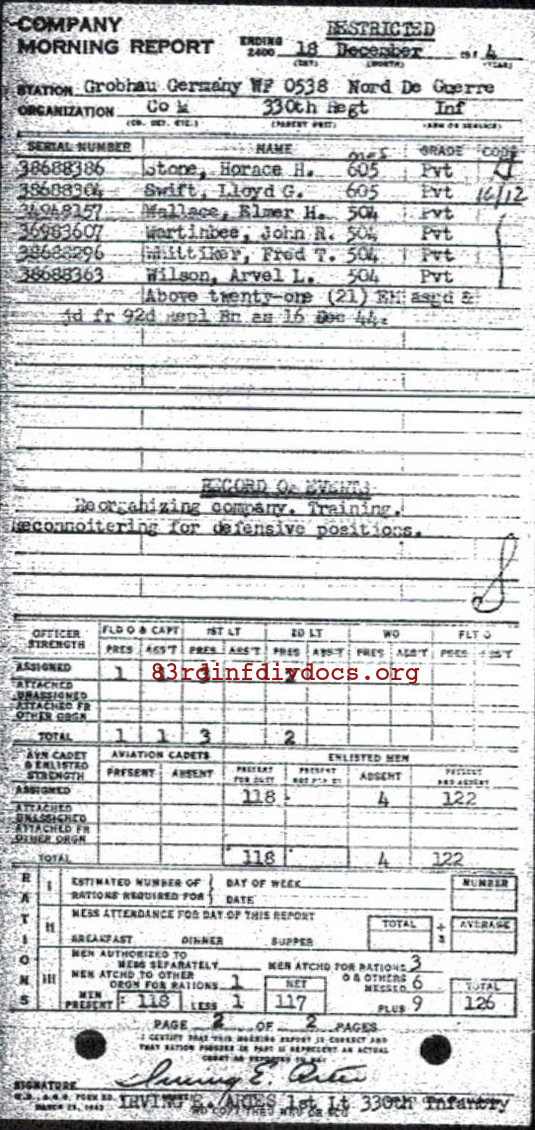 COMPANY RESTRICTED
MORNING REPORT ENDING 2400 18 December 4
(DAY) (MONTH) (YEAR)
STATION Grobhau Germany WF 0538 Nord De Guerre
ORGANIZATION Co M 330th Regt Inf
(CO. DET. ETC.) (PARENT UNIT) (ARM OR SERVICE)
SERIAL NUMBER NAME MOS GRADE CODE
38688386 Stone, Horace H. 605 Pvt
38688304 Swift, Lloyd G. 605 Pvt 16/12
34948157 Wallace, Elmer H. 504 Pvt
36983607 Wartinbee, John R. 504 Pvt
38688296 Whittiker, Fred T. 504 Pvt
38688363 Wilson, Arvel L. 504 Pvt
Above twenty-one (21) EM asgd &
jd fr 92d Repl Bn as 16 Dec 44.
RECORD OF EVENTS
Reorganizing company. Training.
Reconnoitering for defensive positions.
OFFICER STRENGTH FLD O & CAPT 1ST LT 2D LT WO FLT O
PRES ABS'T PRES ABS'T PRES ABS'T PRES ABS'T PRES ABS'T
ASSIGNED 1
83rdinfdivdocs.org
ATTACHED UNASSIGNED
ATTACHED FR OTHER ORGN
TOTAL 1 1 3 2
AVN CADET & ENLISTED STRENGTH AVIATION CADETS ENLISTED MEN
PRESENT ABSENT PRESENT FOR DUTY PRESENT ABSENT PRESENT AND ABSENT
ASSIGNED 118 4 122
ATTACHED UNASSIGNED
ATTACHED FR OTHER ORGN
TOTAL 118 4 122
RATIONS
I ESTIMATED NUMBER OF RATIONS REQUIRED FOR DAY OF WEEK DATE NUMBER
II MESS ATTENDANCE FOR DAY OF THIS REPORT TOTAL ÷ 3 AVERAGE
BREAKFAST DINNER SUPPER
III MEN AUTHORIZED TO MESS SEPARATELY MEN ATCHD FOR RATIONS 3
MEN ATCHD TO OTHER ORGN FOR RATIONS 1 NET O & OTHERS MESSED 6 TOTAL
MEN PRESENT 118 LESS 1 117 PLUS 9 126
PAGE 2 OF 2 PAGES
I CERTIFY THAT THIS MORNING REPORT IS CORRECT AND
THAT RATION FIGURES IN PART III REPRESENT AN ACTUAL
COUNT AS REPORTED TO ME:
Irving E. Artes
SIGNATURE
W.D., A.G.O. FORM NO. IRVING E. ARTES 1st Lt 330th Infantry
MARCH 23, 1943